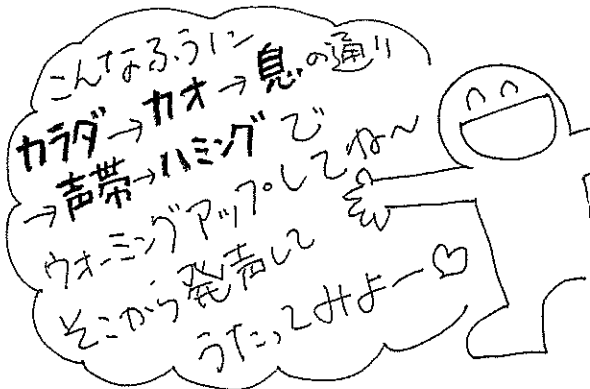 こんなふうに
カラダ→カオ→息の通り
→声帯→ハミングで
ウォーミングアップしてね～
そこから発声して
うたってみよー♡